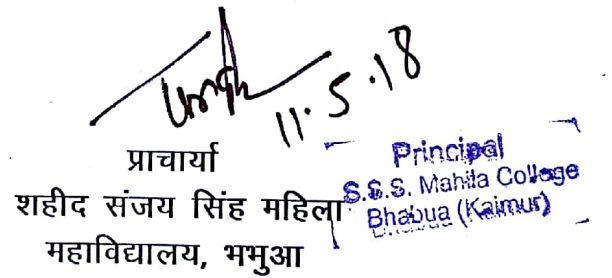 11.5.18
प्राचार्या
शहीद संजय सिंह महिला
महाविद्यालय, भभुआ
Principal
S.S.S. Mahila College
Bhabua (Kaimur)